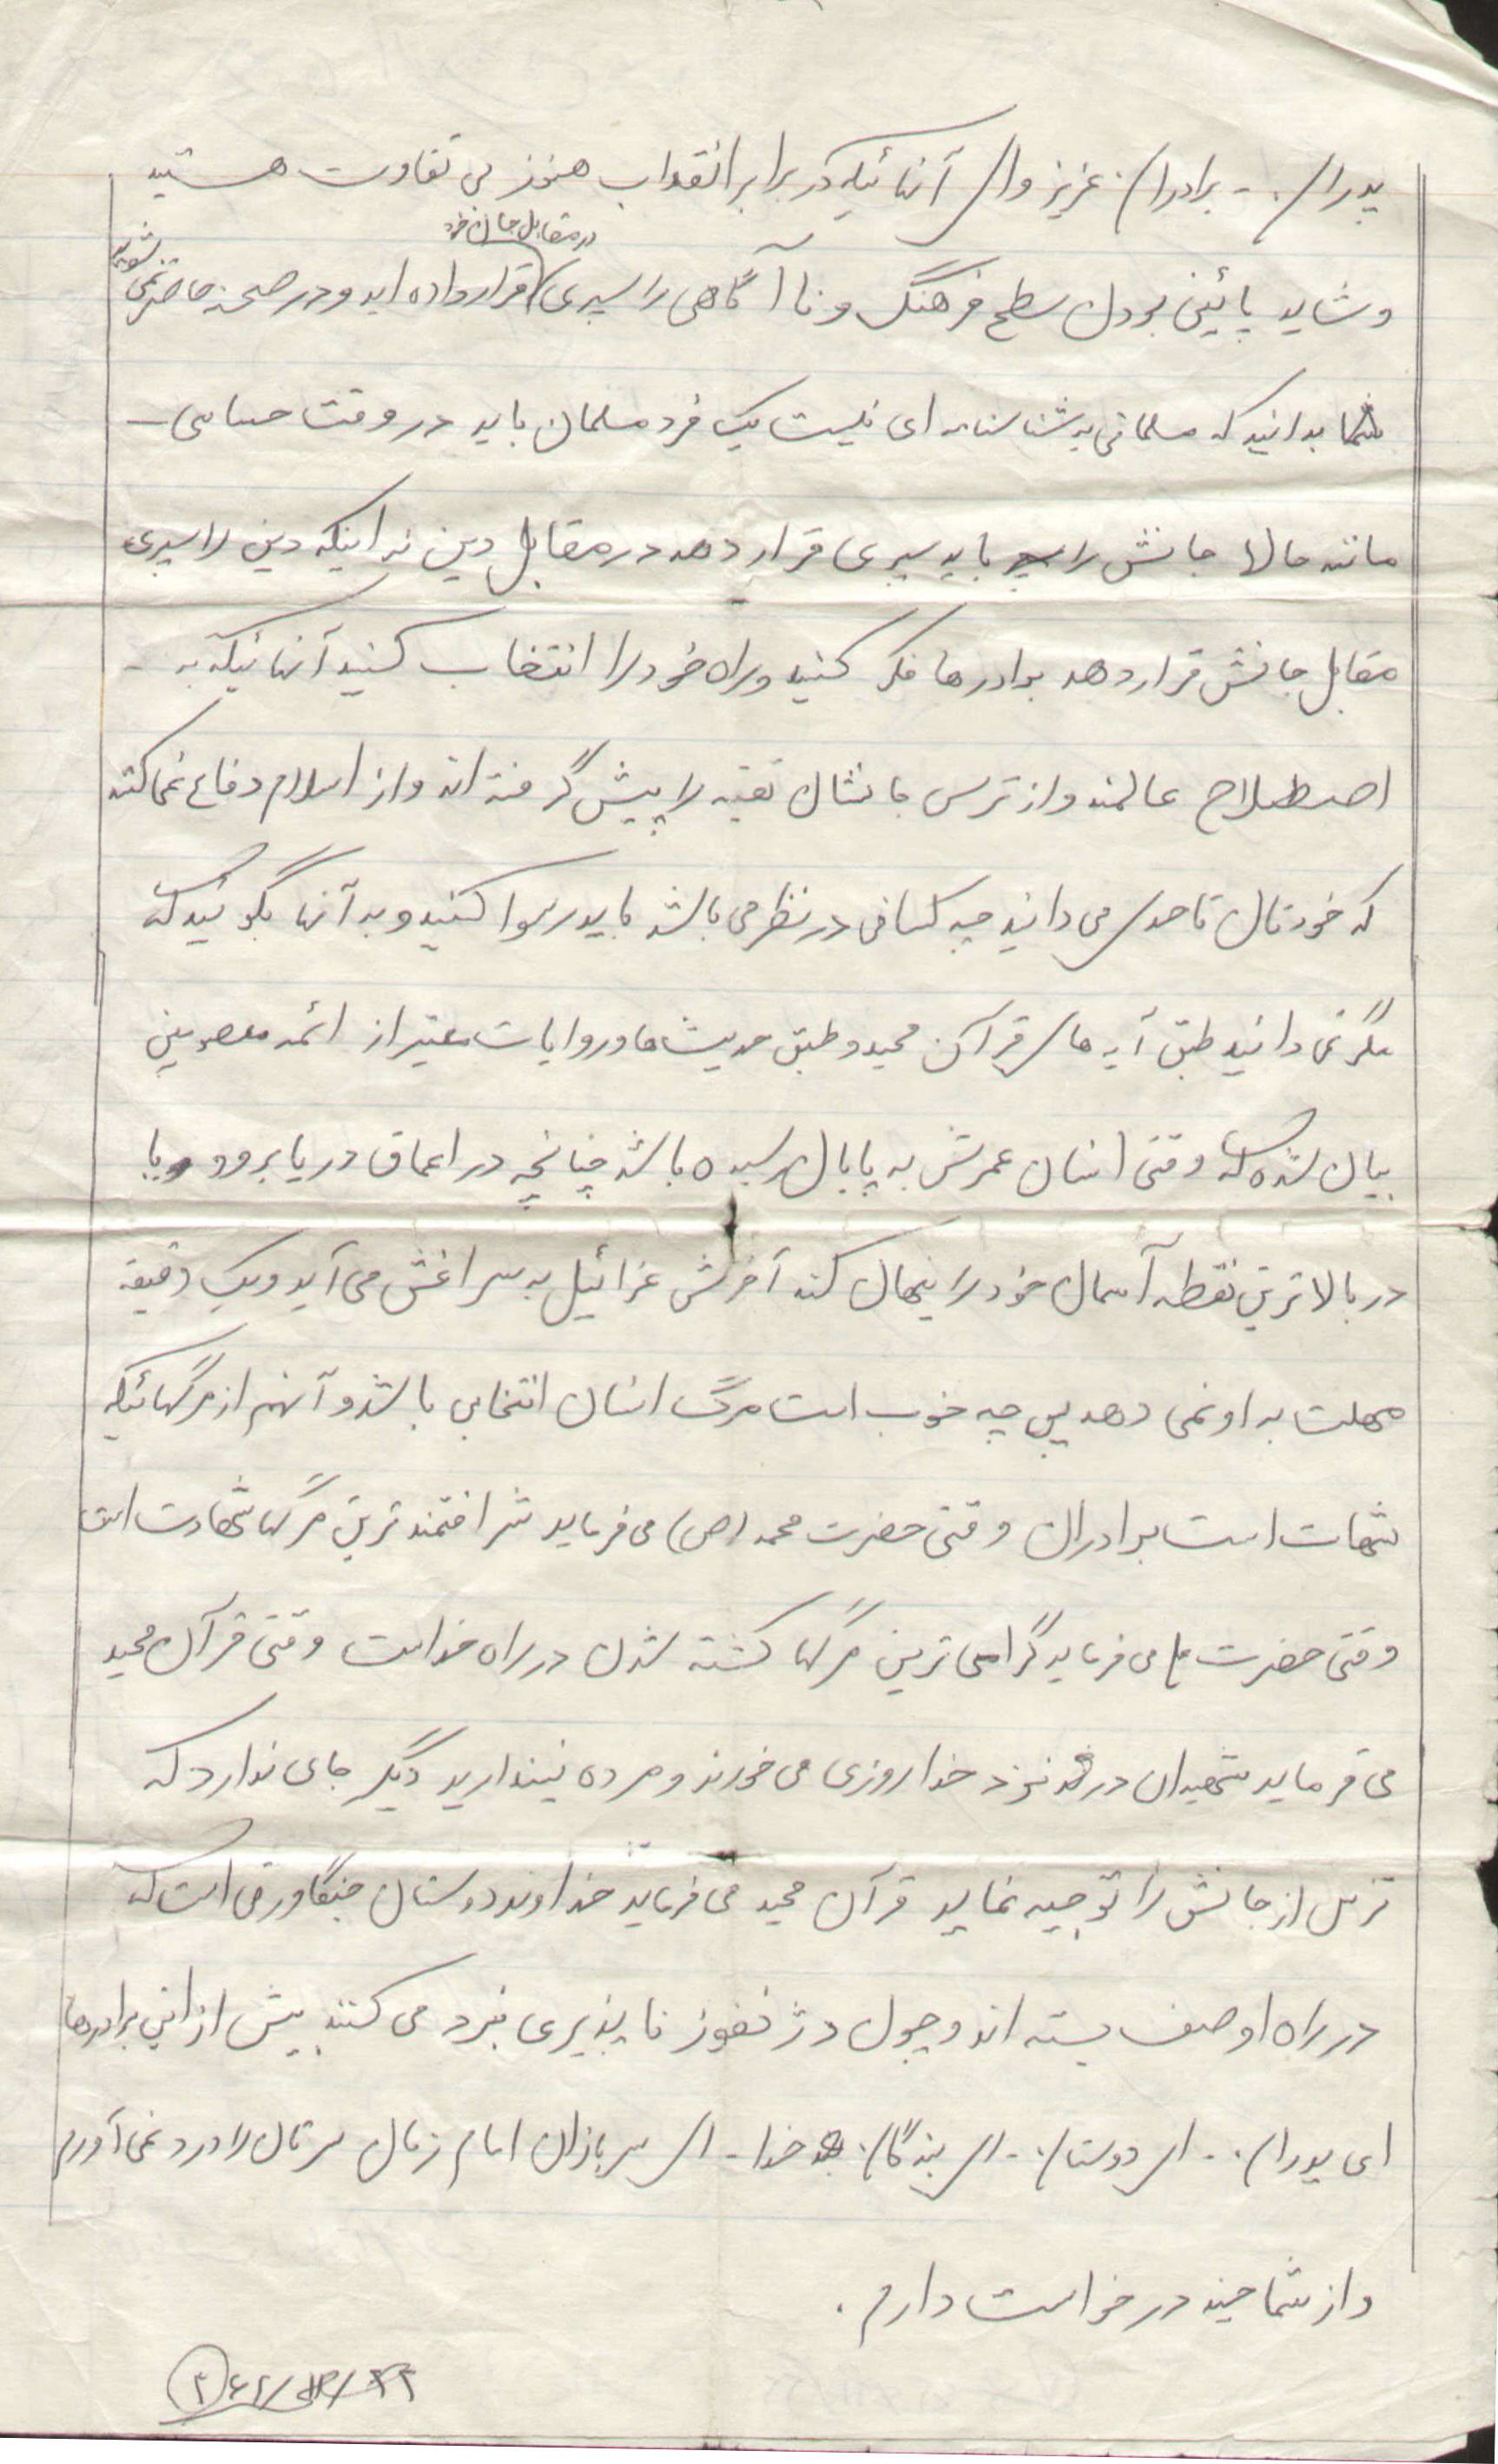 پدران - برادران عزیز و ای آنهائیکه در برابر انقلاب هنوز بی تفاوت هستید
در مقابل جان خود
و شاید پائین بودن سطح فرهنگ و نا آگاهی را سپری قرار داده اید و در صحنه حاضر نمی شوید
شما بدانید که مسلمانی به شناسنامه ای نیست یک فرد مسلمان باید در وقت حساسی -
مانند حالا جانش را باید سپری قرار دهد در مقابل دین نه اینکه دین را سپری
مقابل جانش قرار دهد برادرها فکر کنید و راه خود را انتخاب کنید آنهائیکه به -
اصطلاح عالمند و از ترس جانشان تقیه را پیش گرفته اند و از اسلام دفاع نمی کنند
که خودتان تا حدی می دانید چه کسانی در نظر می باشد باید رسوا کنید و به آنها بگوئید که
مگر نمی دانید طبق آیه های قرآن مجید و طبق حدیث ها و روایات معتبر از ائمه معصومین
بیان شده که وقتی انسان عمرش به پایان رسیده باشد چنانچه در اعماق دریا برود و یا
در بالاترین نقطه آسمان خود را پنهان کند آخرش عزائیل به سراغش می آید و یک دقیقه
مهلت به او نمی دهد پس چه خوب است مرگ انسان انتخابی باشد و آنهم از مرگهائیکه
شهات است برادران وقتی حضرت محمد (ص) می فرماید شرافتمند ترین مرگها شهادت است
وقتی حضرت علی می فرماید گرامی ترین مرگها کشته شدن در راه خداست وقتی قرآن مجید
می فرماید شهیدان در نزد خدا روزی می خورند و مرده نپندارید دیگر جای ندارد که
ترس از جانش را توجیه نماید قرآن مجید می فرماید خداوند دوستان جنگاورنی است که
در راه او صف بسته اند و چون دژ نفوز ناپذیری نبرد می کنند بیش از این برادرها
ای پدران - ای دوستان - ای بندگان خدا - ای سربازان امام زمان سرتان را درد نمی آورم
و از شما چند درخواست دارم .